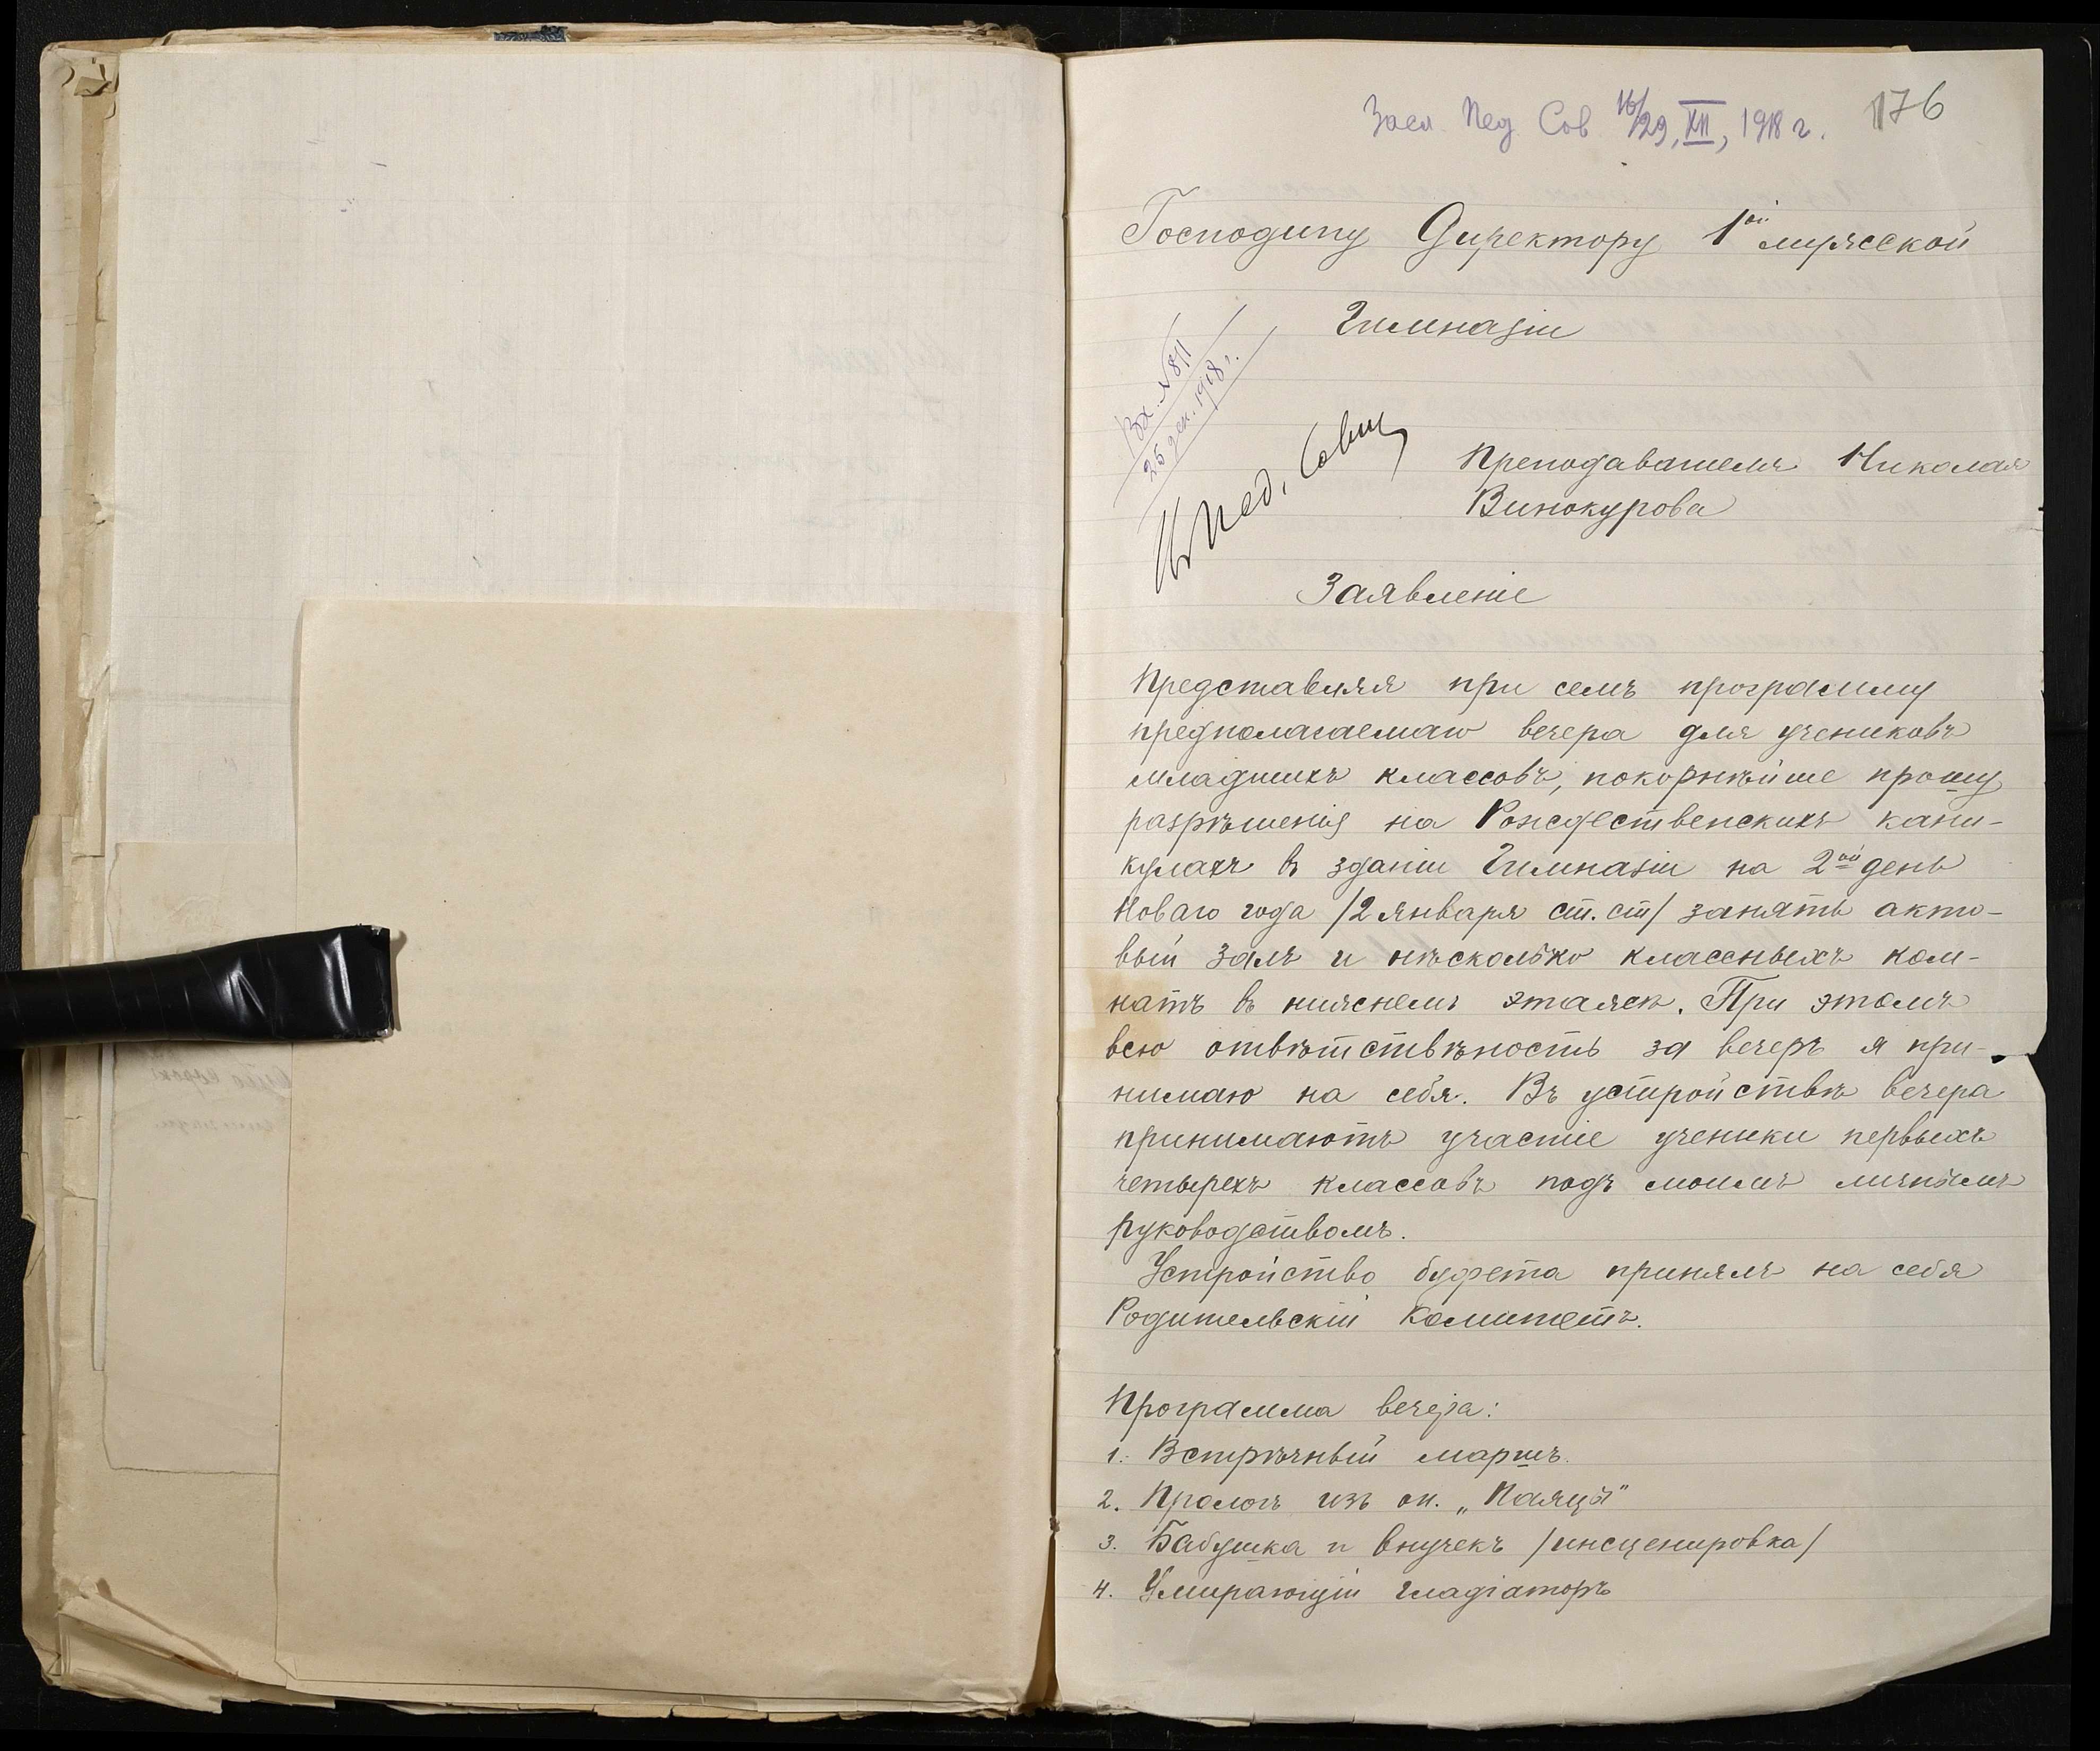 Засл Пед Сов 16/29, XII, 1918 г. 176
Господину Директору 1ой мужской
Гимназіи
Вх. №811
25 дек. 1918 г.
Въ Пед. Совѣт
Преподавателя Николая
Винокурова
Заявленіе
Представляя при семъ программу
предполагаемаго вечера для учениковъ
младшихъ классовъ, покорнѣйше прошу
разрѣшенія на Рождественскихъ кани-
кулахъ въ зданіи Гимназіи на 2ой день
Новаго года /2 января ст. ст/ занять акто-
вый залъ и нѣсколько классныхъ ком-
натъ въ нижнемъ этажѣ. При этомъ
всю отвѣтствѣность за вечеръ я при-
нимаю на себя. Въ устройствѣ вечера
принимаютъ участіе ученики первыхъ
четырехъ классовъ подъ моимъ личнымъ
руководствомъ.
Устройство буфета принялъ на себя
Родительскій Комитетъ.
Программа вечера:
1. Встрѣчный маршъ.
2. Прологъ изъ оп. „Паяцы"
3. Бабушка и внучекъ /инсценировка/
4. Умирающій гладіаторъ